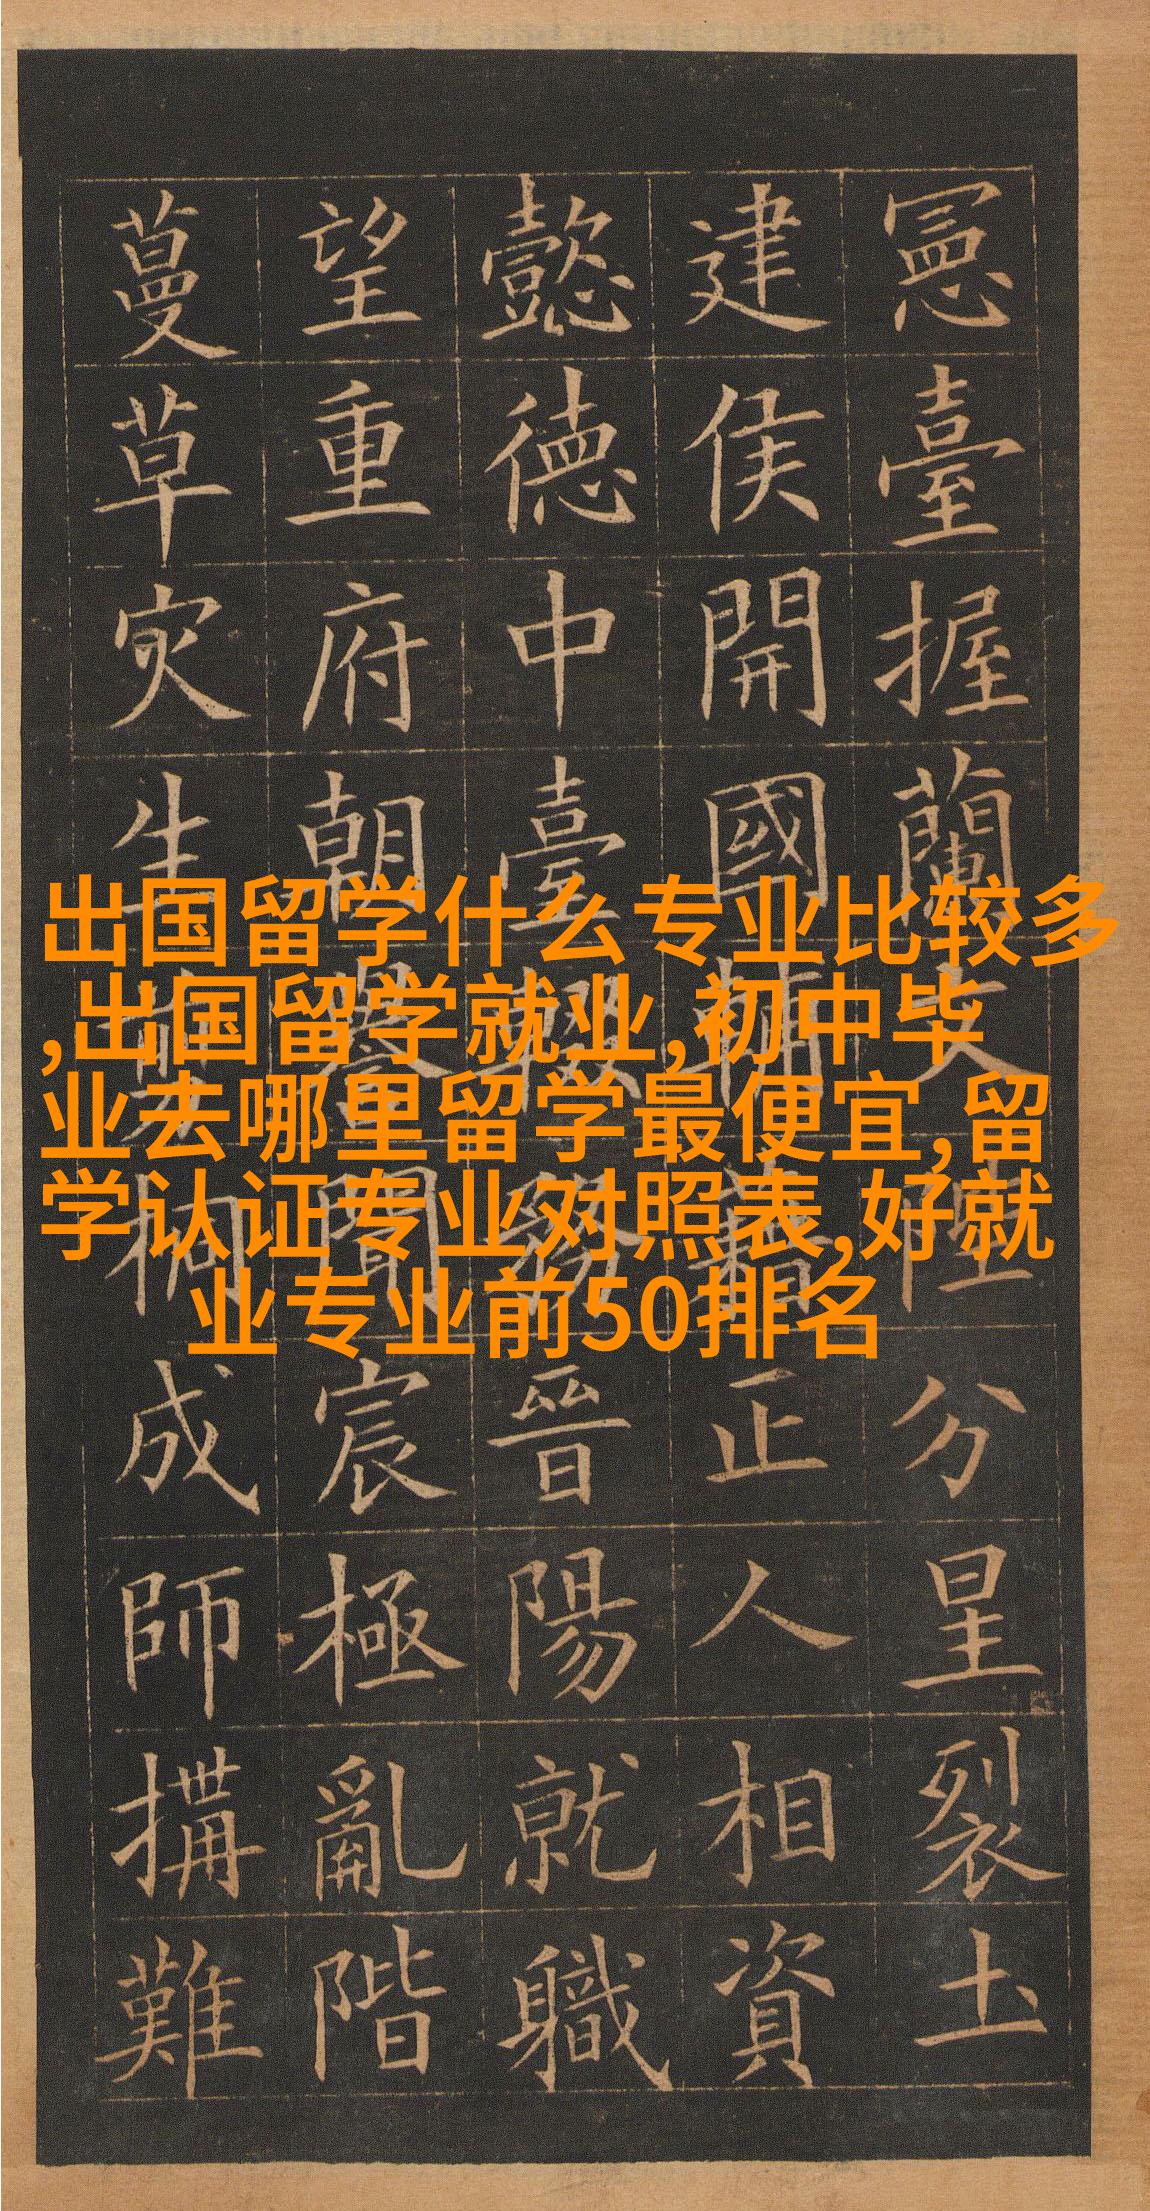 出国留学什么专业比较多
,出国留学就业,初中毕
业去哪里留学最便宜,留
学认证专业对照表,好就
业专业前50排名
憲臺握蘭陛分星裂土
建侯開國輔正人相資
懿德中臺晉陽就職
望重府朝聞宸極亂階
蔓草灾生桐成師搆難